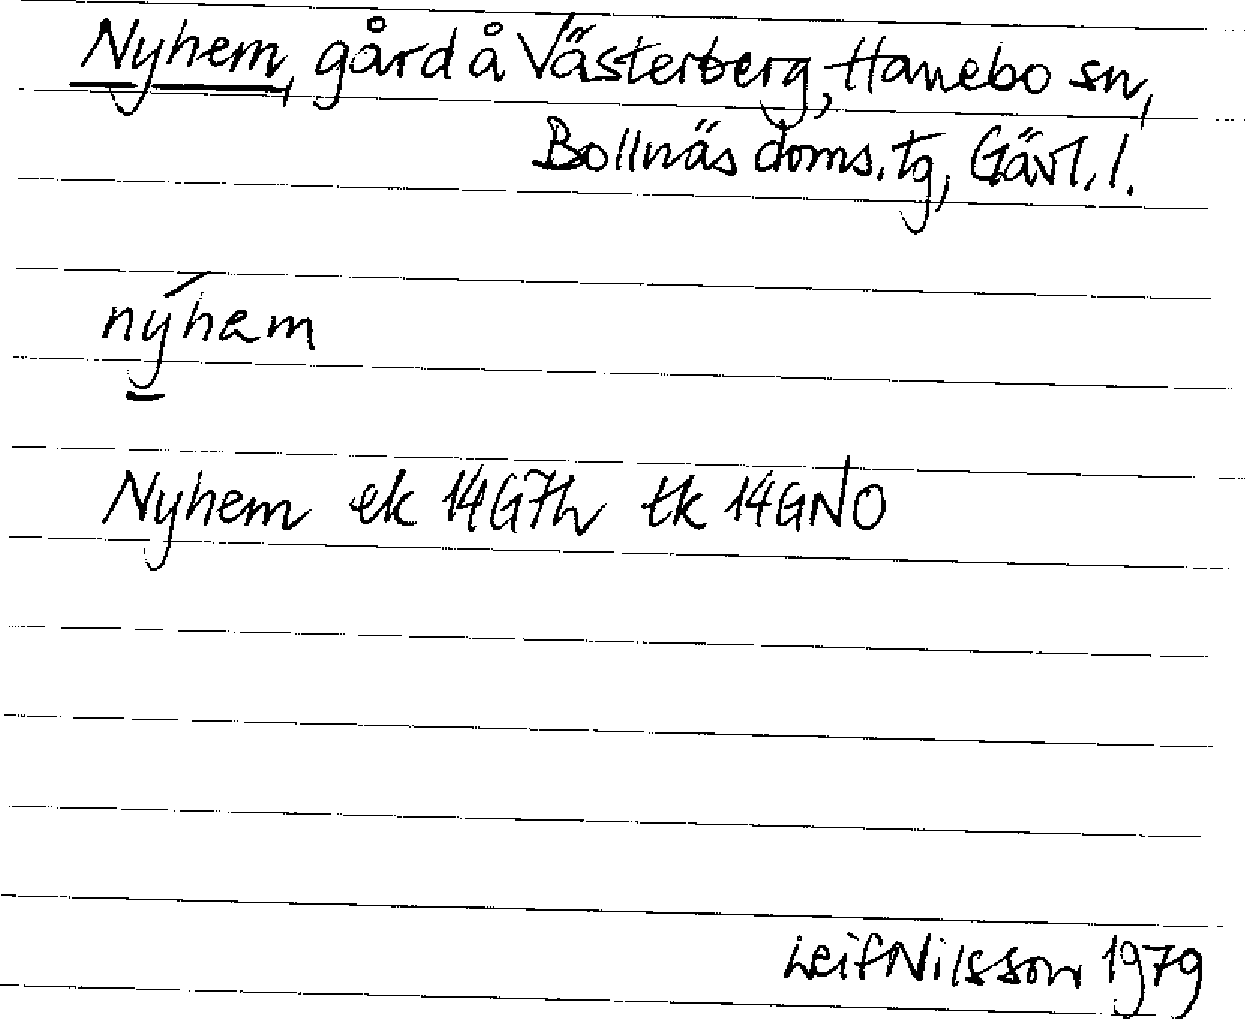 Nyhem, gård å Västerberg, Hanebo sn,
Bollnäs doms.tg, Gävl. l.
nýham
Nyhem ek 14G7h tk 14GNO
Leif Nilsson 1979